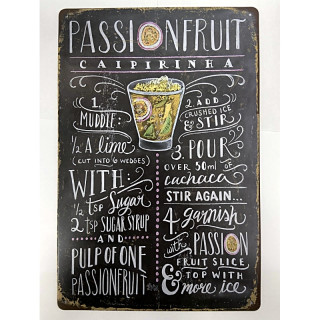 PASSIONFRUIT
CAIPIRINHA
1.
MUDDLE:
1/2 A lime
(CUT INTO 6 WEDGES)
WITH:
1/2 TSP Sugar
2 TSP SUGAR SYRUP
AND
PULP OF ONE
PASSIONFRUIT
2. ADD
CRUSHED ICE
& STIR
3. POUR
OVER 50ml of
cachaca
STIR AGAIN...
4. garnish
with PASSION
FRUIT SLICE,
& TOP WITH
more ice